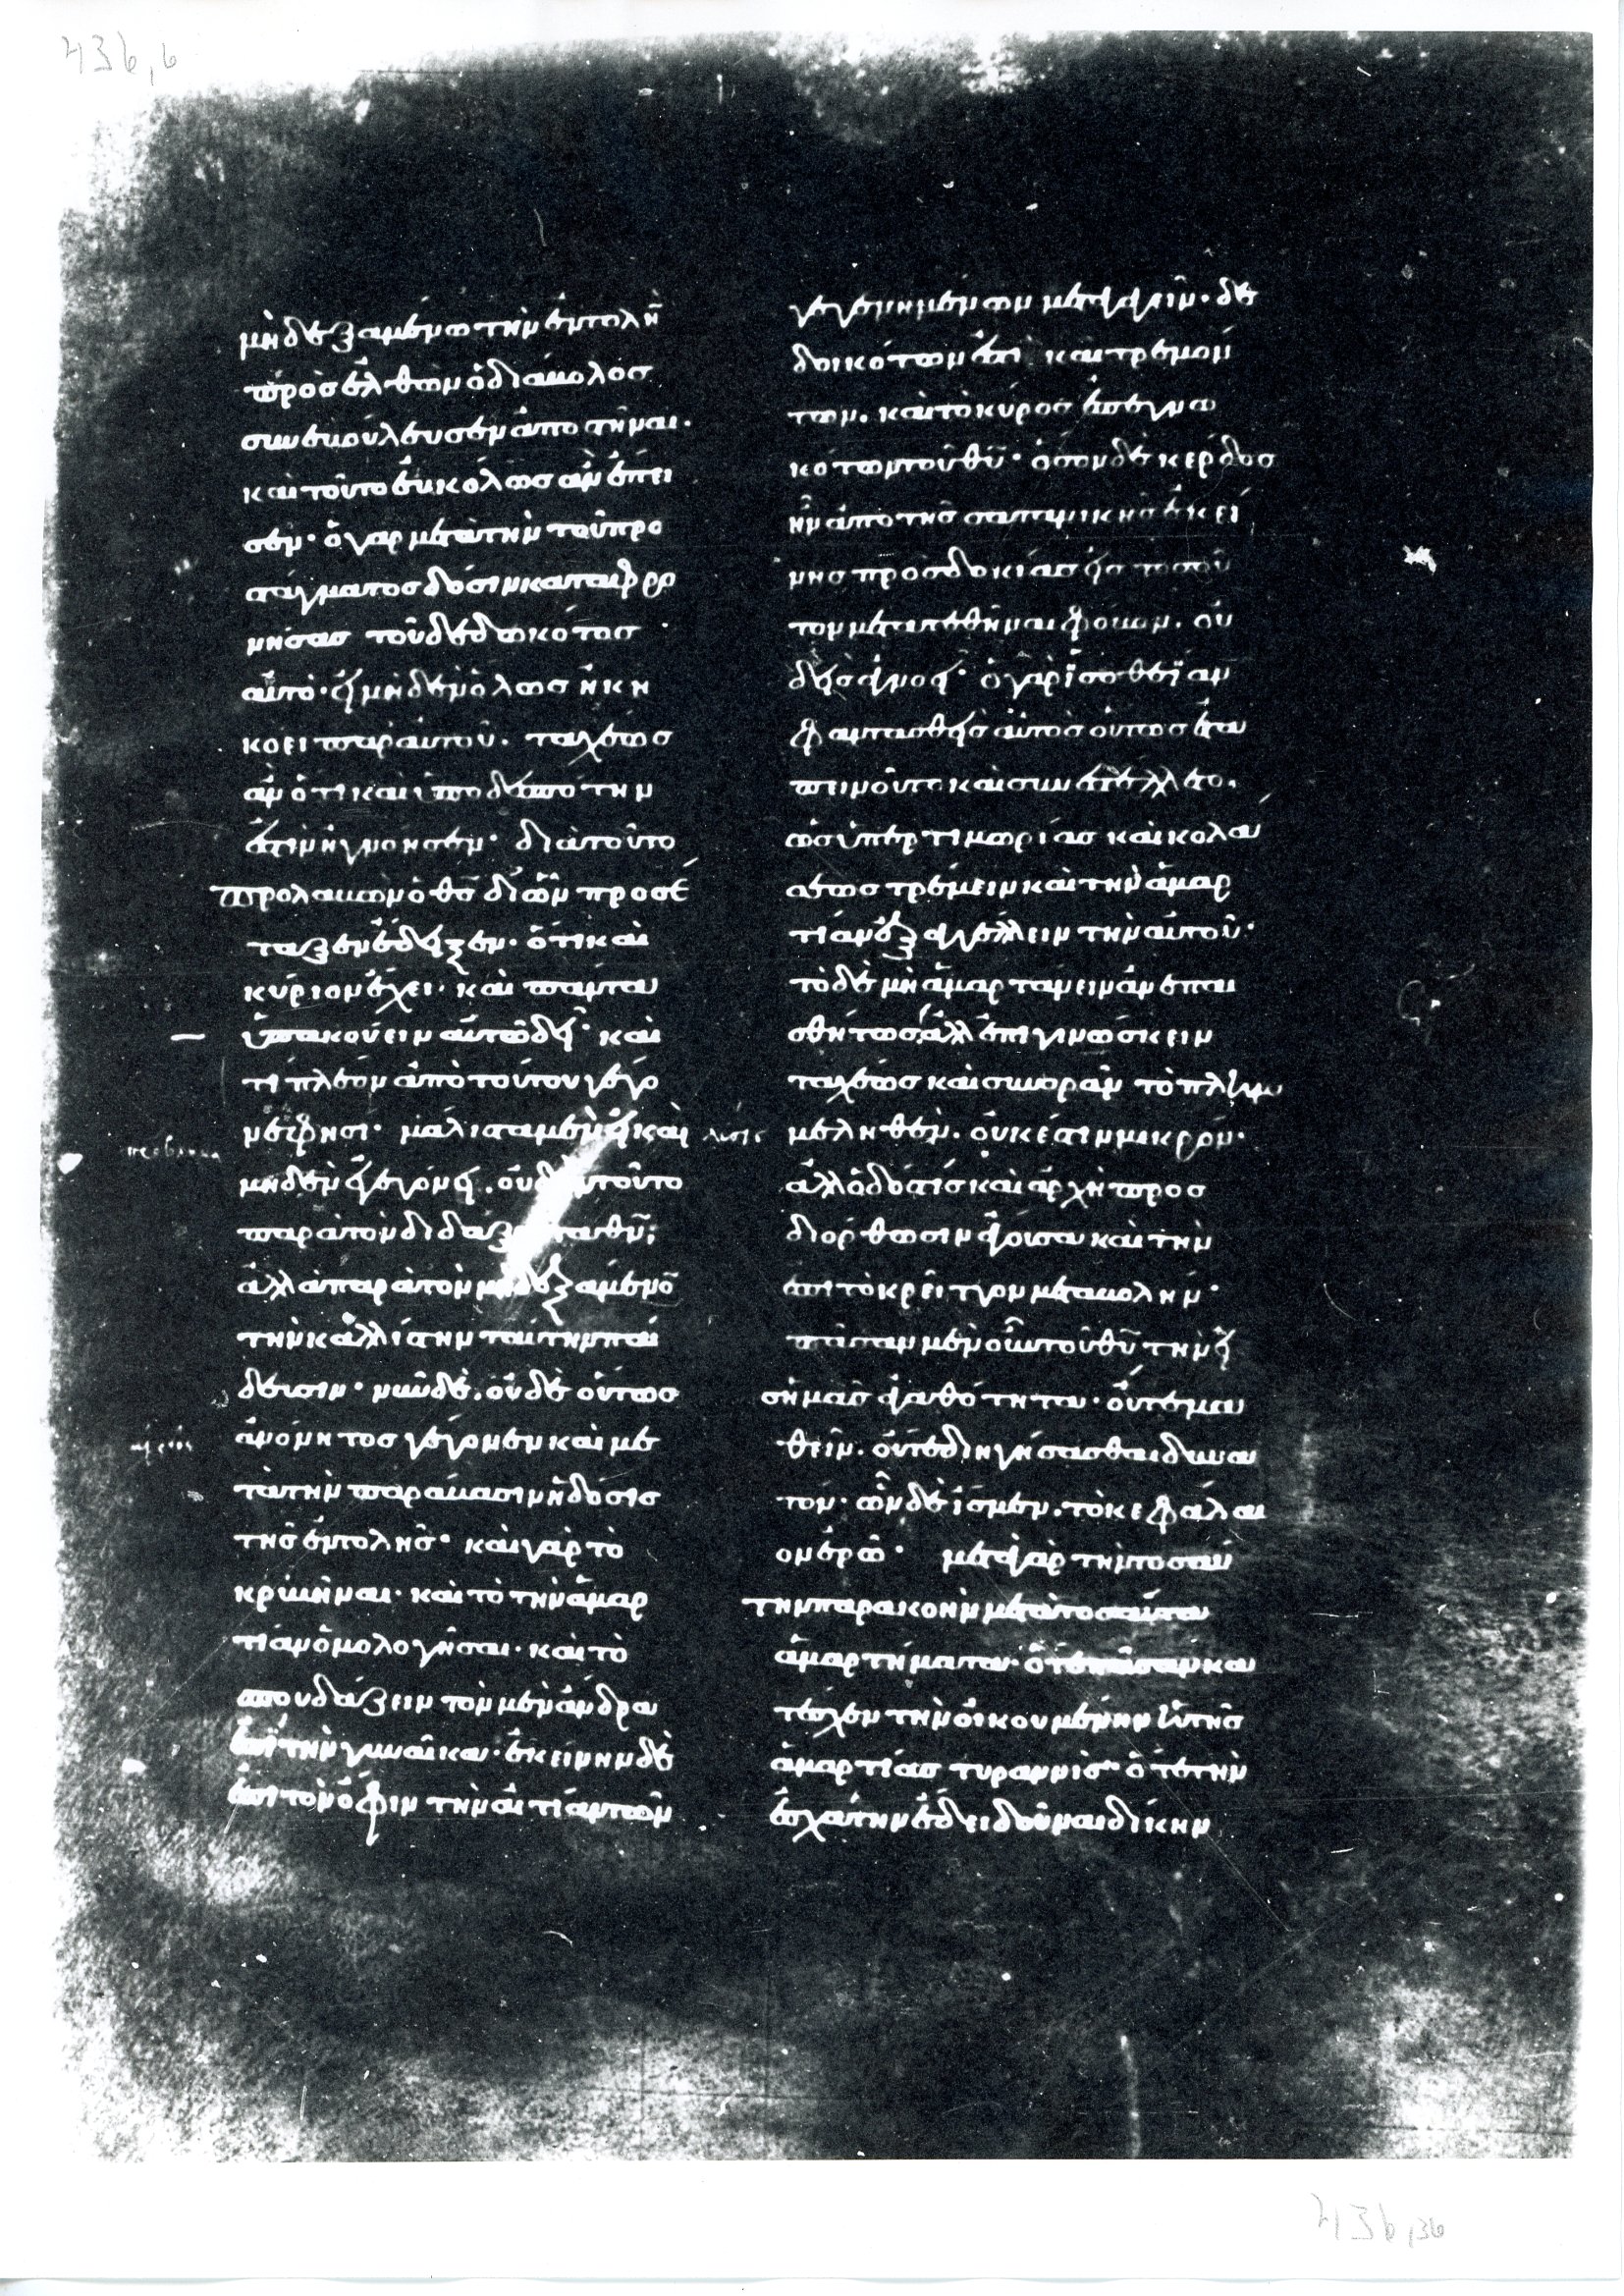 436,6
μὴ δεξαμένω τὴν ἐντολὴ̅
προσελθὼν ὁ διάβολος
συνεβούλευσεν ἀποστῆναι·
καὶ τοῦτο εὐκόλως ἂν ἔπει
σεν· ὁ γὰρ μετὰ τὴν τοῦ προ
στάγματος δόσιν καταφρο
νήσας τοῦ δεδωκότος
αὐτό· εἰ μηδὲν ὅλως ἠκη
κόει παρ' αὐτοῦ. ταχέως
ἂν ὅτι καὶ ὑπὸ δεσπότην
ἐστὶν ἠγνόησεν· διὰ τοῦτο
προλαβὼν ὁ θς̅ δι' ὧν προσέ
ταξεν ἔδειξεν· ὅτι καὶ
κύριον ἔχει· καὶ πάντα
ὑπακούειν αὐτῶ δεῖ· καὶ
τί πλέον ἀπὸ τούτου γέγο
νέ φησι· μάλιστα μὲν εἰ καὶ
μηδὲν ἐγεγόνει. οὐ τοῦτο
παρὰ τὸν διδάξαντα θν̅;
ἀλλὰ παρὰ τὸν μὴ δεξάμενο̅
τὴν καλλίστην ταύτην παί
δευσιν· νῦν δὲ. οὐδὲ οὕτως
ἀνόνητος γέγονεν καὶ με
τὰ τὴν παράβασιν ἡ δόσις
τῆς ἐντολῆς· καὶ γὰρ τὸ
κρυβῆναι· καὶ τὸ τὴν ἁμαρ
τίαν ὁμολογῆσαι· καὶ τὸ
σπουδάζειν τὸν μὲν ἄνδρα
ἐπὶ τὴν γυναῖκα· ἐκείνην δὲ
ἐπὶ τὸν ὄφιν τὴν αἰτίαν τῶν
γεγενημένων μεταφέρειν· δε
δοικότων ἐστὶ καὶ τρεμόν
των. καὶ τὸ κύρος ἐπεγνω
κότων τοῦ θυ̅· ὅσον δὲ κέρδος
ἦν ἀπὸ τῆς σατανικῆς ἐκεί
νης προσδοκίας εἰς τοσοῦ
τον μεταστῆναι φόβον. οὐ
δεὶς ἀγνοεῖ· ὁ γὰρ ἰσοθεΐαν
φαντασθεὶς αὐτὸς οὕτως ἐτα
πεινοῦτο καὶ συνεστέλλετο.
ὡς ὑπὲρ τιμωρίας καὶ κολά
σεως τρέμειν καὶ τὴν ἁμαρ
τίαν ἐξαγγέλλειν τὴν αὐτοῦ·
τὸ δὲ μὴ ἁμαρτάνειν ἀνεπαι
σθήτως, ἀλλ' ἐπιγινώσκειν
ταχέως καὶ συνορᾶν τὸ πλημ
μεληθὲν. οὐκ ἔστιν μικρὸν·
ἀλλ' ὁδός τις καὶ ἀρχὴ προς
διόρθωσιν φέρουσα καὶ τὴν
ἐπὶ τὸ κρεῖττον μεταβολὴν·
πᾶσαν μὲν οὖν τοῦ θυ̅ τὴν εἰ
ς ἡμᾶς ἀγαθότητα· οὔτε μα
θεῖν. οὔτε διηγήσασθαι δυνα
τόν· ὧν δὲ ἴσμεν. τὸ κεφάλαι
ον ἐρῶ· μετὰ γὰρ τὴν τοσαύ
την παρακοὴν μετὰ τοσαῦτα
ἁμαρτήματα· ὅτε πᾶσαν κα
τέσχεν τὴν οἰκουμένην ἡ τῆς
ἁμαρτίας τυραννὶς· ὅτε τὴν
ἐσχάτην ἔδει δοῦναι δίκην
436,36